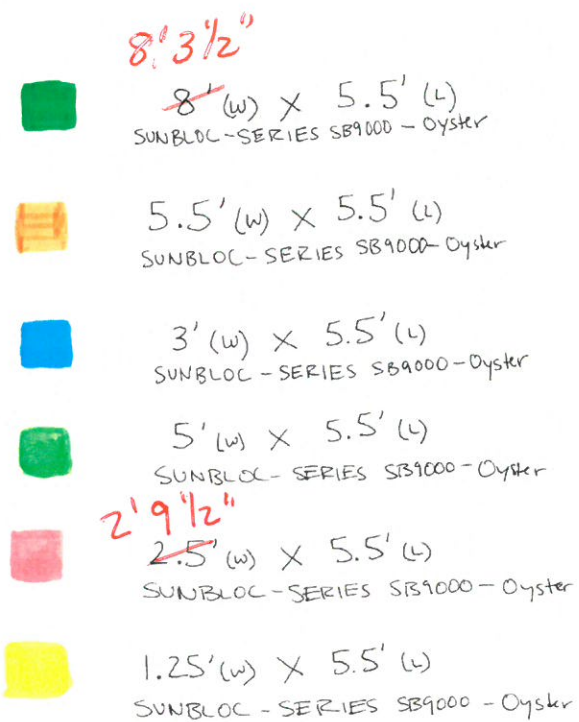 8' 3 1/2"
8' (W) X 5.5' (L)
SUNBLOC-SERIES SB9000 - Oyster
5.5' (W) X 5.5' (L)
SUNBLOC - SERIES SB9000 - Oyster
3' (W) X 5.5' (L)
SUNBLOC - SERIES SB9000 - Oyster
5' (W) X 5.5' (L)
SUNBLOC - SERIES SB9000 - Oyster
2' 9 1/2"
2.5' (W) X 5.5' (L)
SUNBLOC - SERIES SB9000 - Oyster
1.25' (W) X 5.5' (L)
SUNBLOC - SERIES SB9000 - Oyster